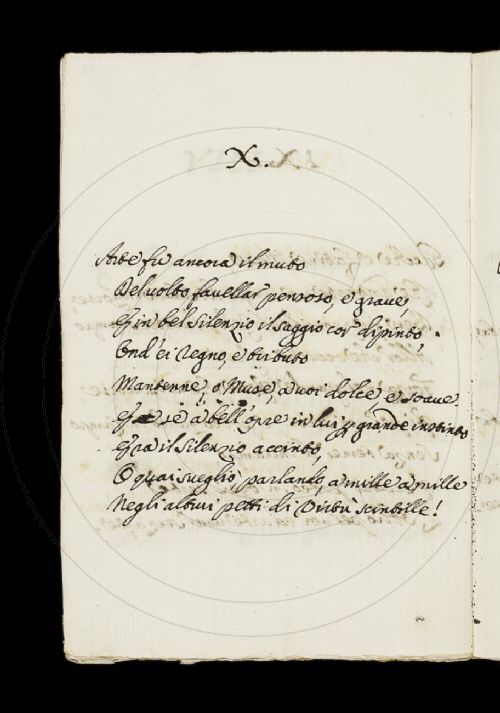 X.
Arte fu ancora il muto
Del volto favellar pensoso, e grave,
E in bel silenzio il saggio cor dipinto,
Ond' ei regno, e tributo
Mantenne, o Muse, a voi dolce, e soave.
E se a bell' opre in lui grande instinto
Era il silenzio accinto,
O quai svegliò parlando, a mille a mille
Negli altrui petti di Virtù scintille!